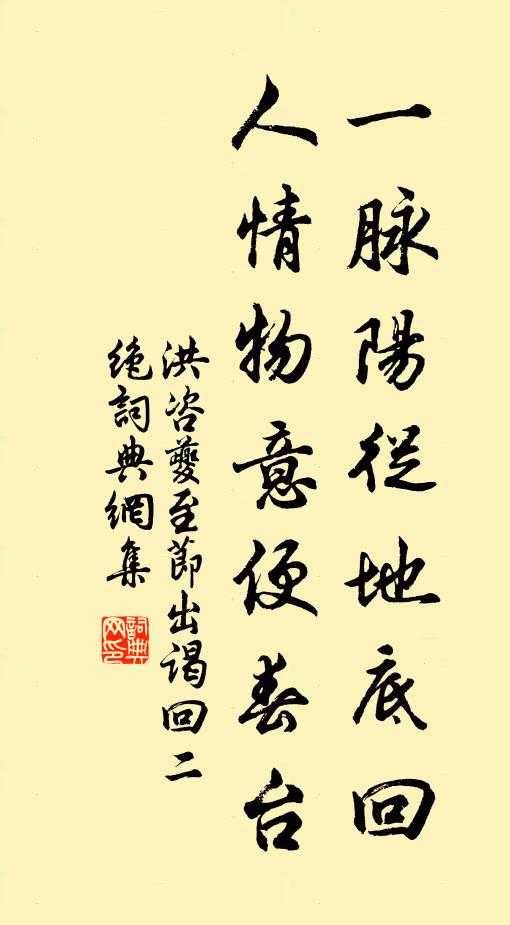 一脉陽從地底回
人情物意便春台
洪咨夔至節出謁回二
絕詞典網集
詞典網印